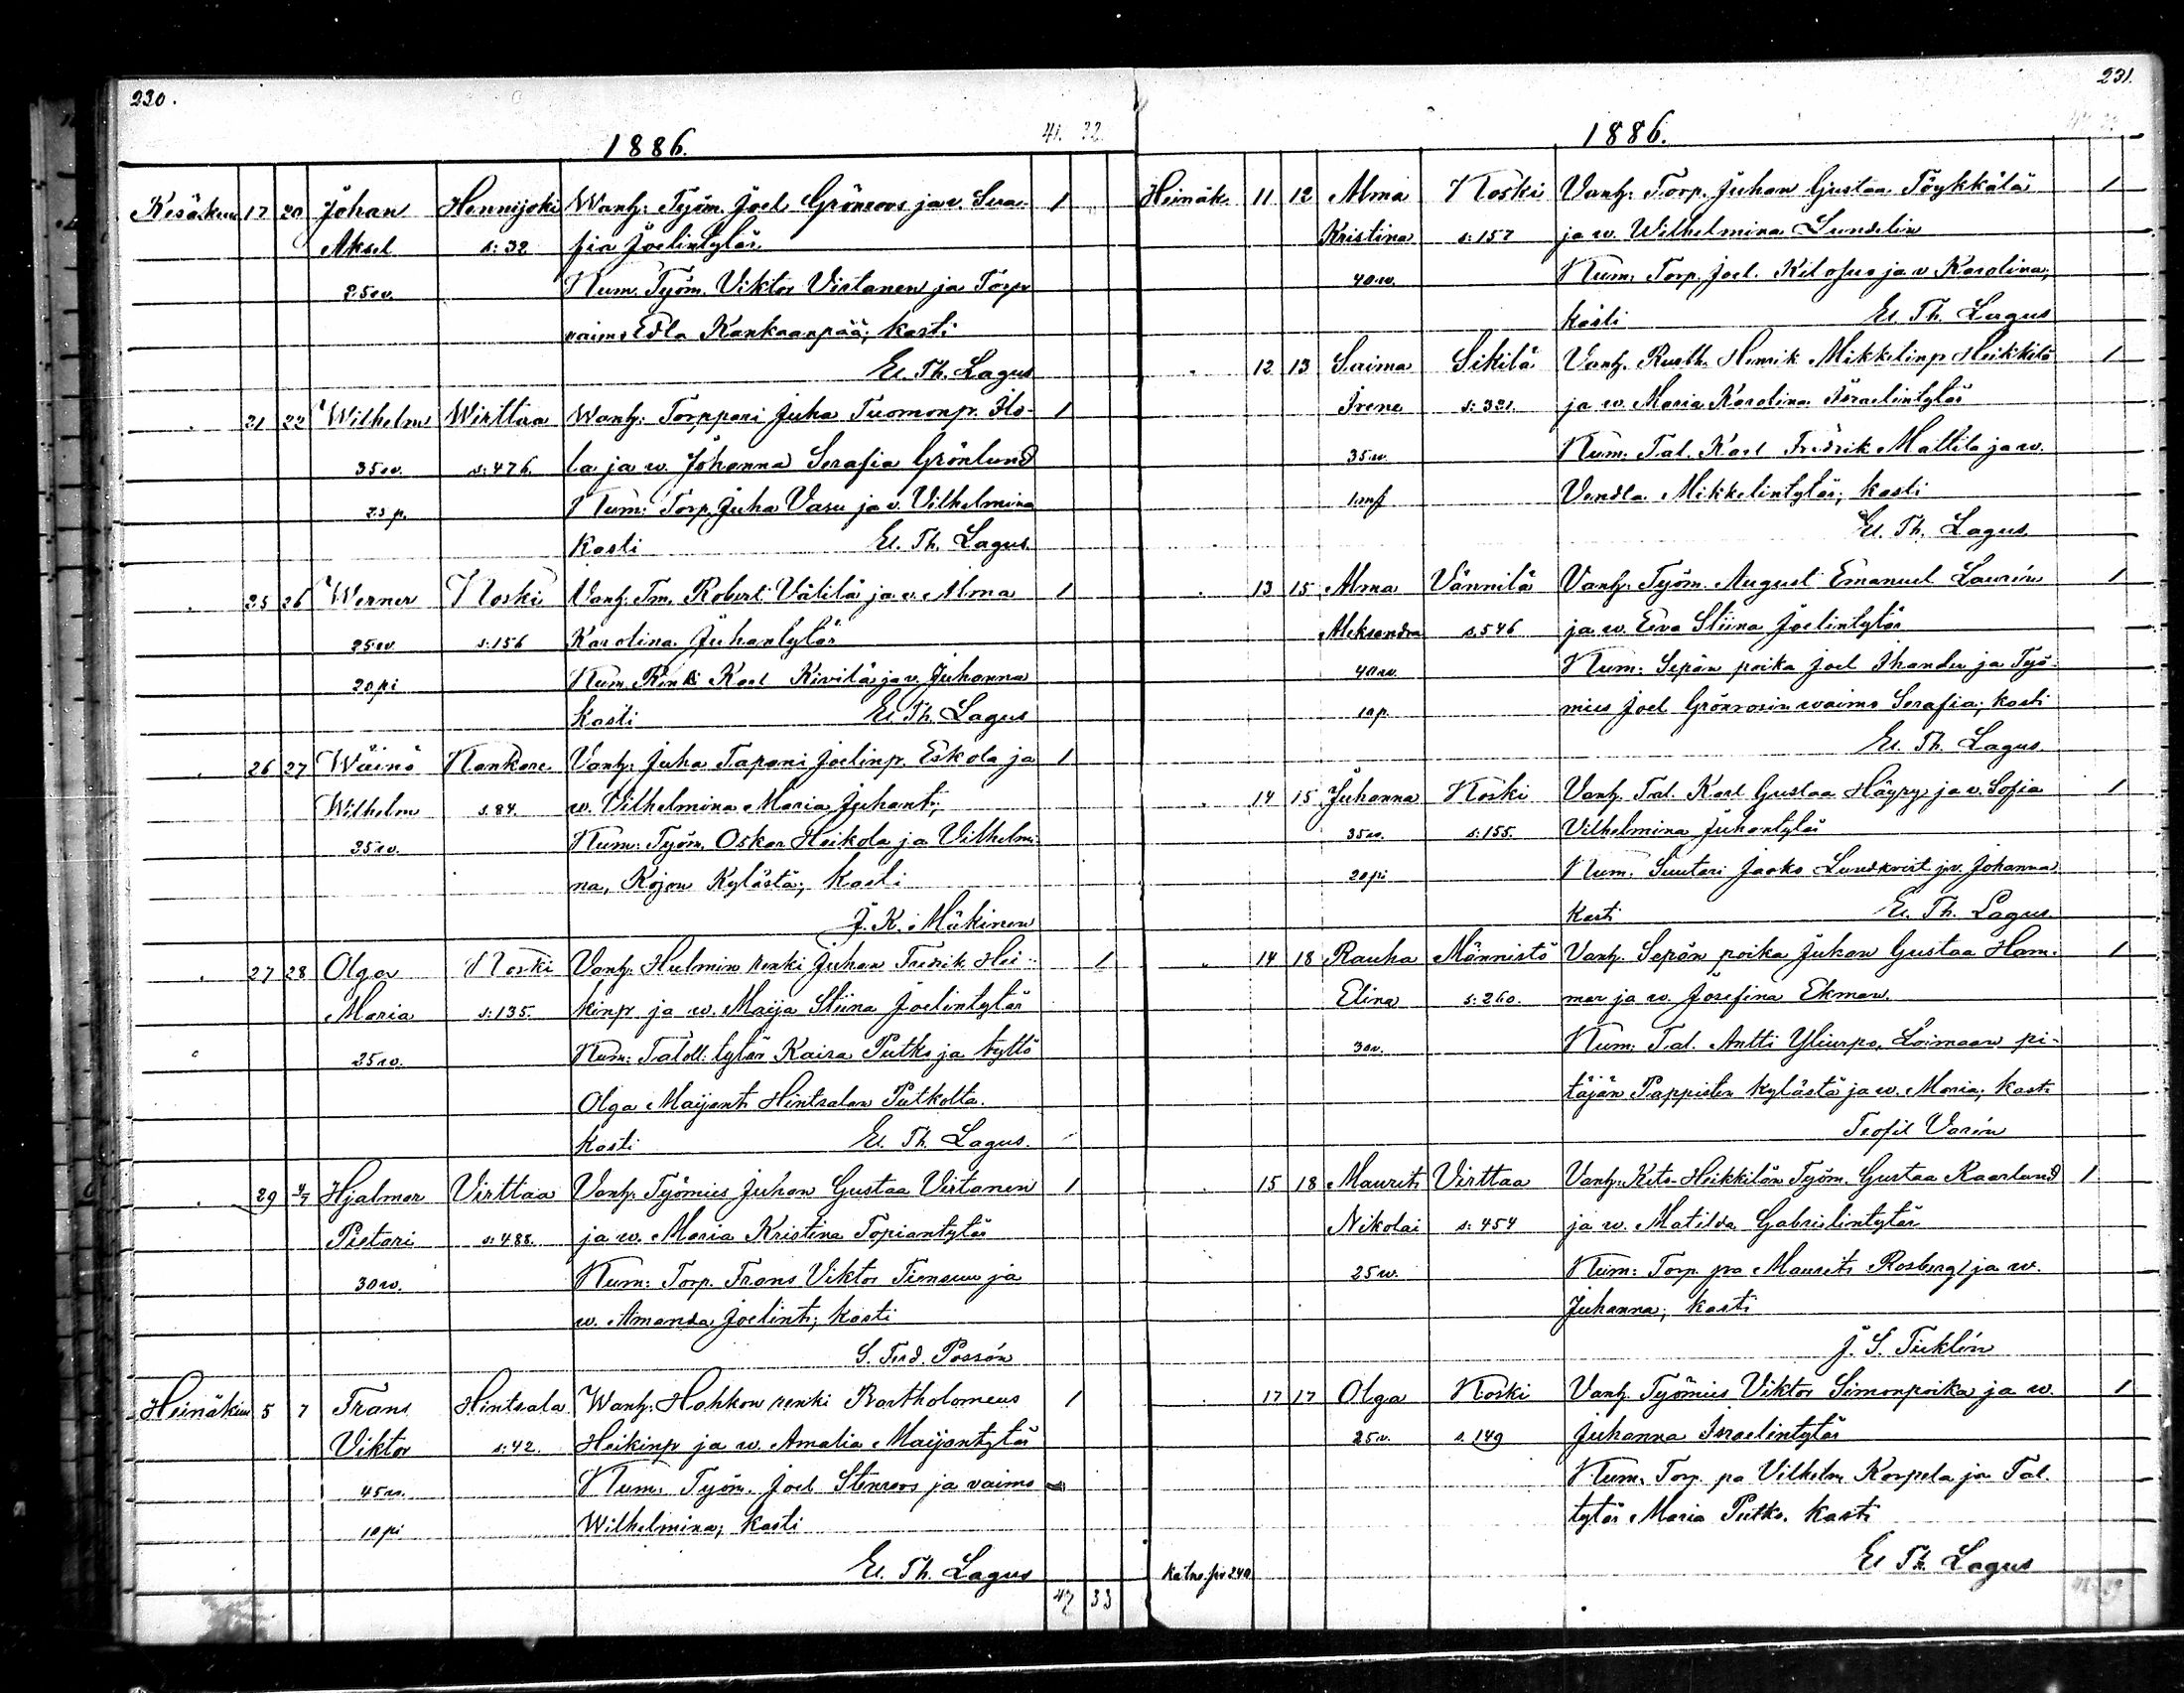 230.
1886.
41. 32.
Kesäkuu 17 20 Johan Hennijoki Wanh: Työm. Joel Grönroos ja v. Sera- 1
Aksel s: 32 fia Joelintytär
25 v. Num. Työm. Viktor Virtanen ja Torp.
vaimo Edla Kankaanpää; kasti
El. Th. Lagus
21 22 Wilhelm Wirttaa Wanh: Torppari Juha Tuomonp. Ilo- 1
35 v. s: 476. la ja w. Johanna Serafia Grönlund
23 p. Num: Torp. Juha Vasu ja v. Vilhelmina
kasti El. Th. Lagus.
25 26 Werner Koski Vanh. Tm. Robert Välilä ja v. Alma 1
25 v. s: 156 Karolina Juhantytär
20 pi Num. Renki Karl Kivilä ja v. Juhanna
kasti El. Th. Lagus
26 27 Wäinö Kankare Vanh: Juha Taponi Joelinp. Eskola ja 1
Wilhelm s. 84. w. Vilhelmina Maria Juhant;
35 v. Num: Työm. Oskar Heikola ja Vilhelmi-
na, Kojon Kylästä; kasti
J. K. Mäkinen
27 28 Olga Koski Vanh: Hulmin renki Juhan Fredrik Hei- 1
Maria s: 135. kinp ja w. Maija Stiina Joelintytär
25 v. Num: Taloll: tytär Kaisa Putko ja tyttö
Olga Maijant. Hintsalan Putkolta.
kasti El. Th. Lagus.
29 4/7 Hjalmar Virttaa Vanh: Työmies Juhan Gustaa Virtanen 1
Pietari s: 488. ja w. Maria Kristina Topiantytär
30 v. Num: Torp. Frans Viktor Tiensuu ja
w. Amanda Joelint; kasti
S. Ferd. Possén
Heinäkuu 5 7 Frans Hintsala Wanh: Hohkon renki Bartholomeus 1
Viktor s: 42. Heikinp ja w. Amalia Maijantytär
45 v. Num: Työm. Joel Stenroos ja vaimo
10 pi Wilhelmina; kasti
El. Th. Lagus
42 33
231.
1886.
Heinäk. 11 12 Alma Koski Vanh: Torp. Juhan Gustaa Töykkälä 1
Kristina s: 157 ja w. Wilhelmina Lundelin
40 v. Num: Torp. Joel. ja v Karolina,
kasti El. Th. Lagus
12 13 Saima Sikilä Vanh. Rusth. Henrik Mikkelinp Heikkilä 1
Irene s: 321. ja w. Maria Karolina Israelintytär
35 v. Num. Tal. Karl Fredrik Mattila ja w.
Vendla Mikkelintytär; kasti
El. Th. Lagus
13 15 Alma Vännilä Vanh: Työm. August Emanuel Laurén 1
Aleksandra s. 546 ja w. Eeva Stiina Joelintytär
40 v. Num: Sepän poika Joel Ihander ja Työ-
10 p. mies Joel Grönroosin waimo Serafia; kasti
El. Th. Lagus.
14 15 Juhanna Koski Vanh. Tal. Karl Gustaa Häyry ja v. Sofia 1
35 v. s: 155. Vilhelmina Juhantytär
20 pi Num. Suutari Jaako Lundkvist jav. Johanna
kasti El. Th. Lagus.
14 18 Rauha Männistö Vanh. Sepän poika Juhan Gustaa Ham- 1
Elina s: 260. mar ja w. Josefina Ekman.
30 v. Num: Tal. Antti Yliurpo, Loimaan pi-
täjän Pappisten kylästä ja w. Maria; kasti
Teofil Varén
15 18 Maurits Virttaa Vanh: Keto-Heikkilän Työm. Gustaa Kaarlund 1
Nikolai s: 454 ja w. Matilda Gabrielintytär
25 w. Num: Torp. pa Maurits Rosberg ja w.
Juhanna; kasti
J. S. Tuklén
17 17 Olga Koski Vanh. Työmies Viktor Simonpoika ja w. 1
25 v. s. 149 Juhanna Israelintytär
Num. Torp. pa Vilhelm Korpela ja Tal.
tytär Maria Putko. kasti
El Th. Lagus
Katso siv 240